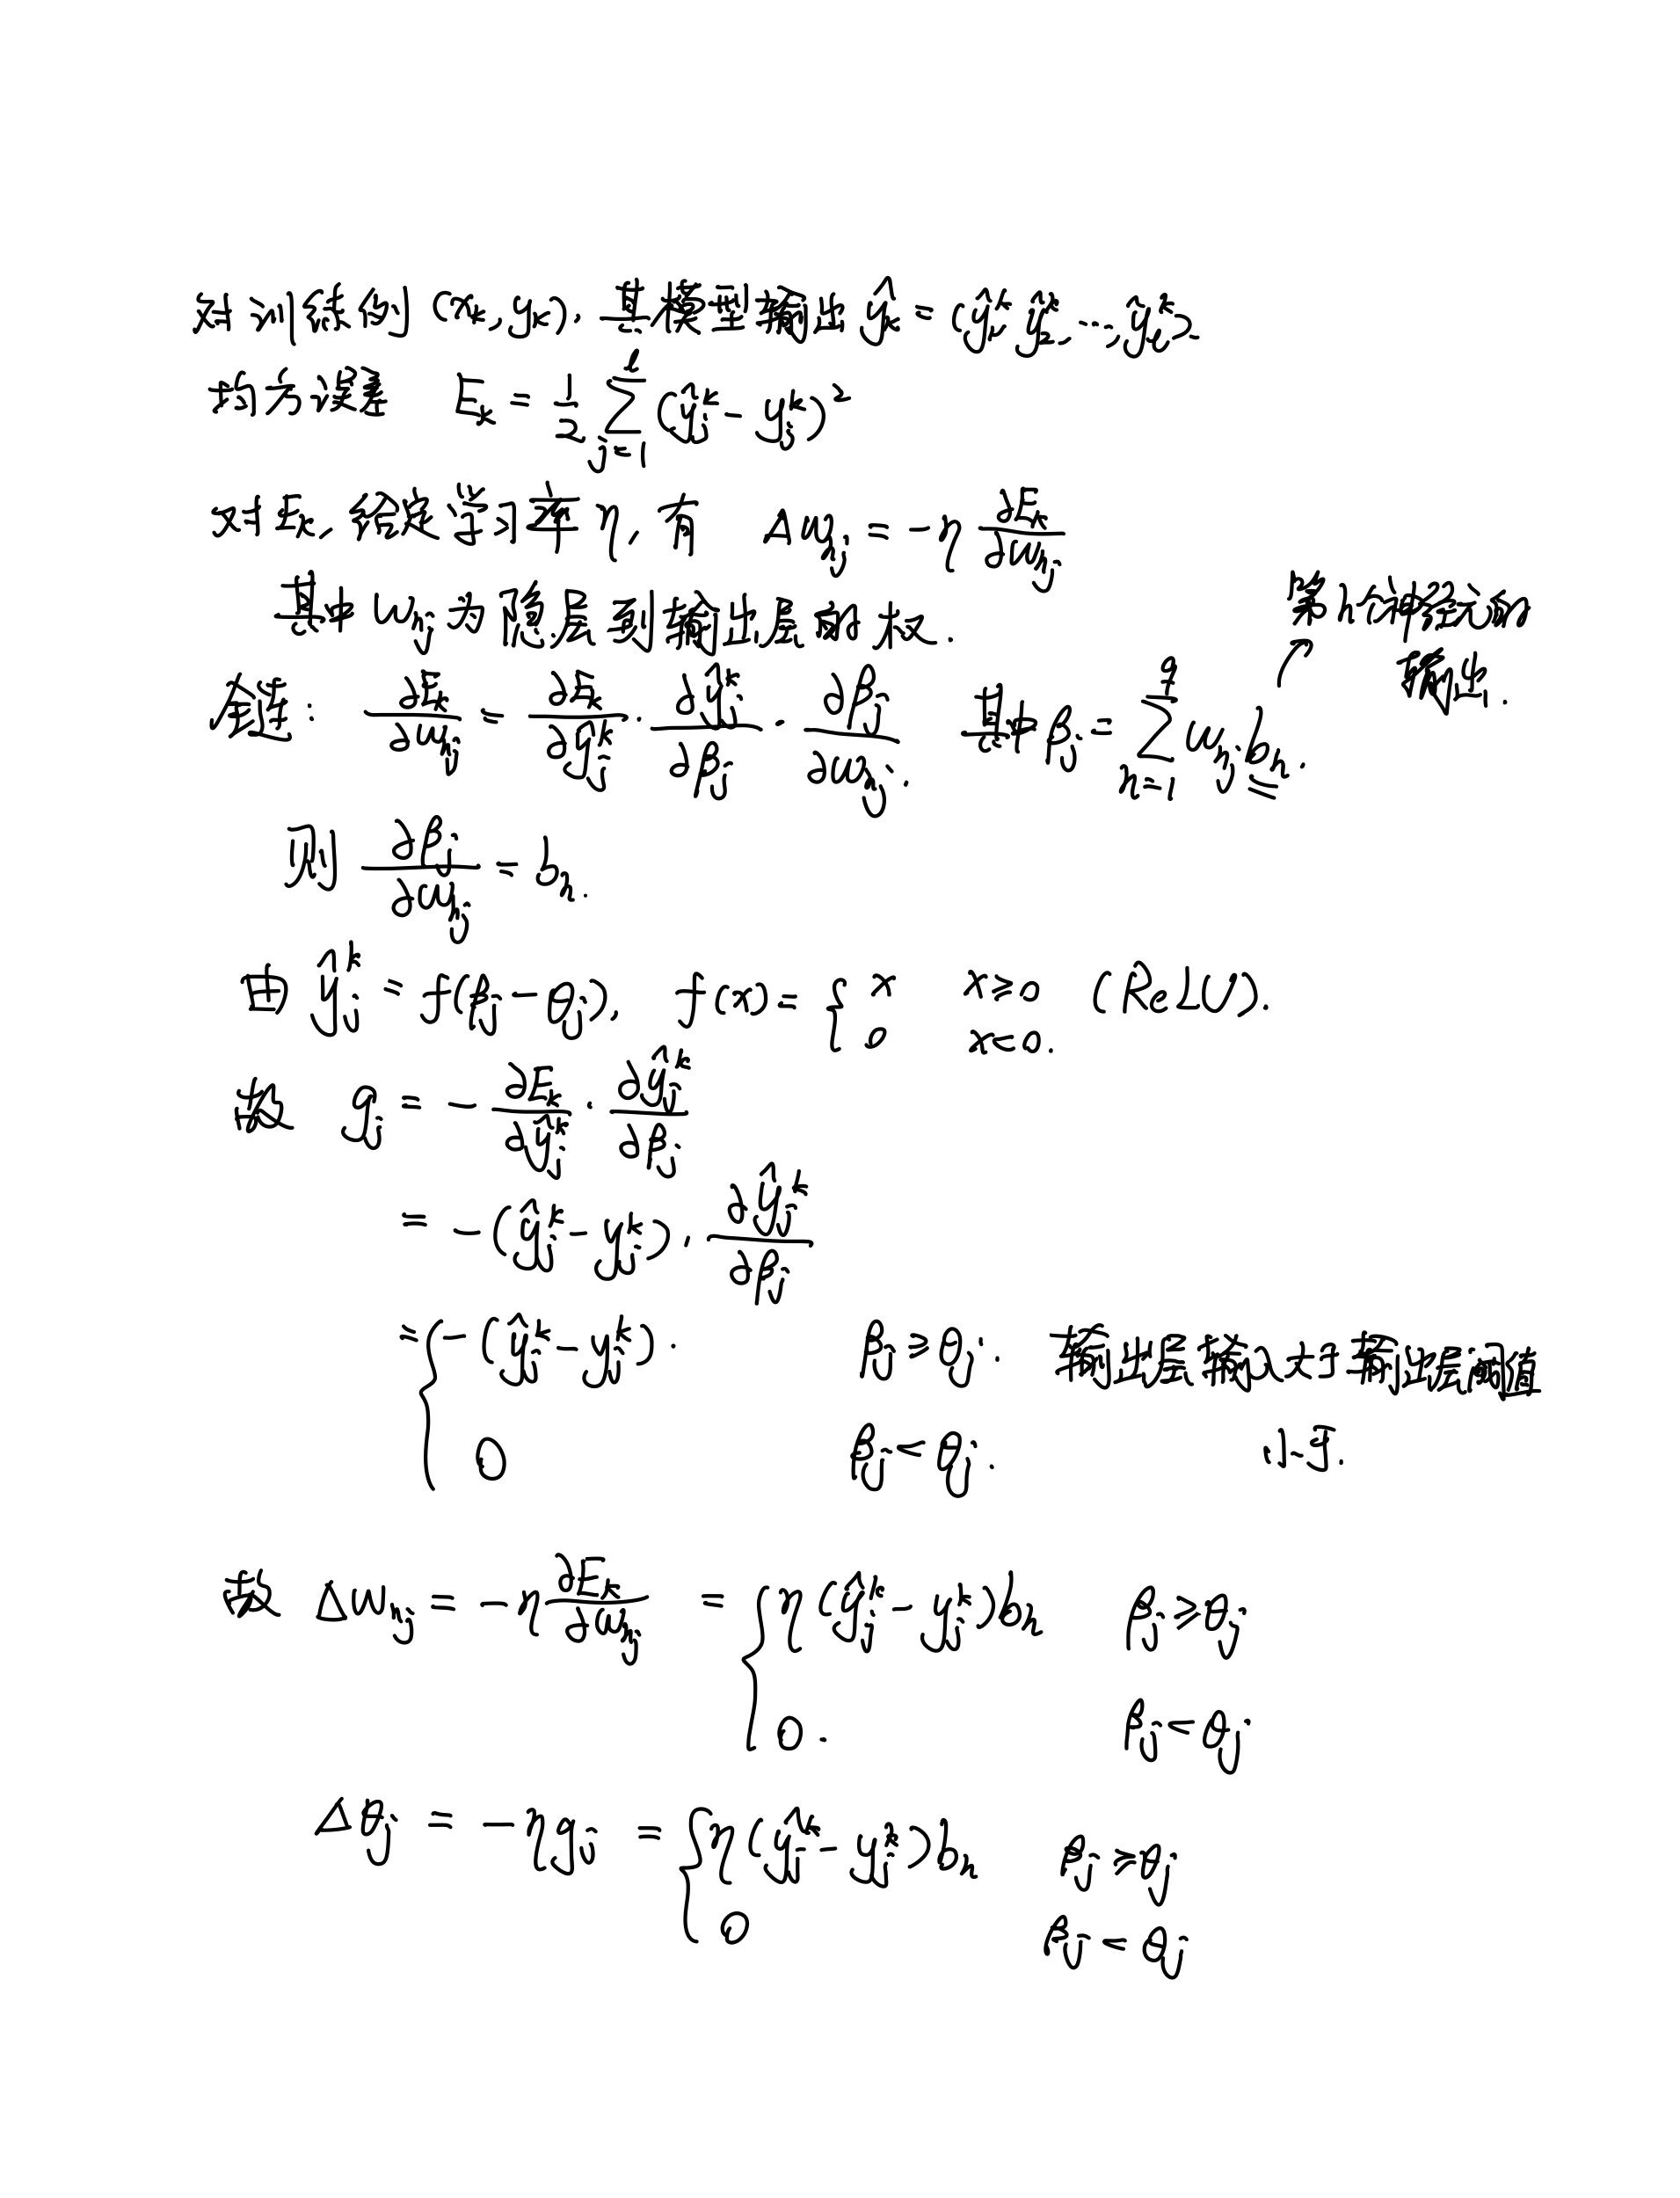 对训练例 (xₖ, yₖ), 其模型输出 ŷₖ = (ŷ₁ᵏ, ŷ₂ᵏ, ..., ŷₗᵏ).
均方误差 Eₖ = 1/2 ∑_{j=1}^{l} (ŷⱼᵏ - yⱼᵏ)²
对Eₖ, 给定学习率η, 有 Δw_{hj} = -η ∂Eₖ/∂w_{hj}
其中 w_{hj} 为隐层到输出层的权.
第h个神经元的
输出.
∂Eₖ/∂w_{hj} = ∂Eₖ/∂ŷⱼᵏ · ∂ŷⱼᵏ/∂βⱼ · ∂βⱼ/∂w_{hj}. 其中βⱼ = ∑_{h=1}^{q} w_{hj} b_h.
则 ∂βⱼ/∂w_{hj} = b_h.
由 ŷⱼᵏ = f(βⱼ - θⱼ), f(x) = { x x≥0 (ReLU).
0 x<0.
故 gⱼ = - ∂Eₖ/∂ŷⱼᵏ · ∂ŷⱼᵏ/∂βⱼ
= -(ŷⱼᵏ - yⱼᵏ) · ∂ŷⱼᵏ/∂βⱼ
= { -(ŷⱼᵏ - yⱼᵏ). βⱼ ≥ θⱼ. 输出层输入大于输出层阈值
0 βⱼ < θⱼ. 小于.
故 Δw_{hj} = -η ∂Eₖ/∂w_{hj} = { η(ŷⱼᵏ - yⱼᵏ)b_h βⱼ ≥ θⱼ
0. βⱼ < θⱼ
Δθⱼ = -ηgⱼ = { η(ŷⱼᵏ - yⱼᵏ)b_h βⱼ ≥ θⱼ
0 βⱼ < θⱼ